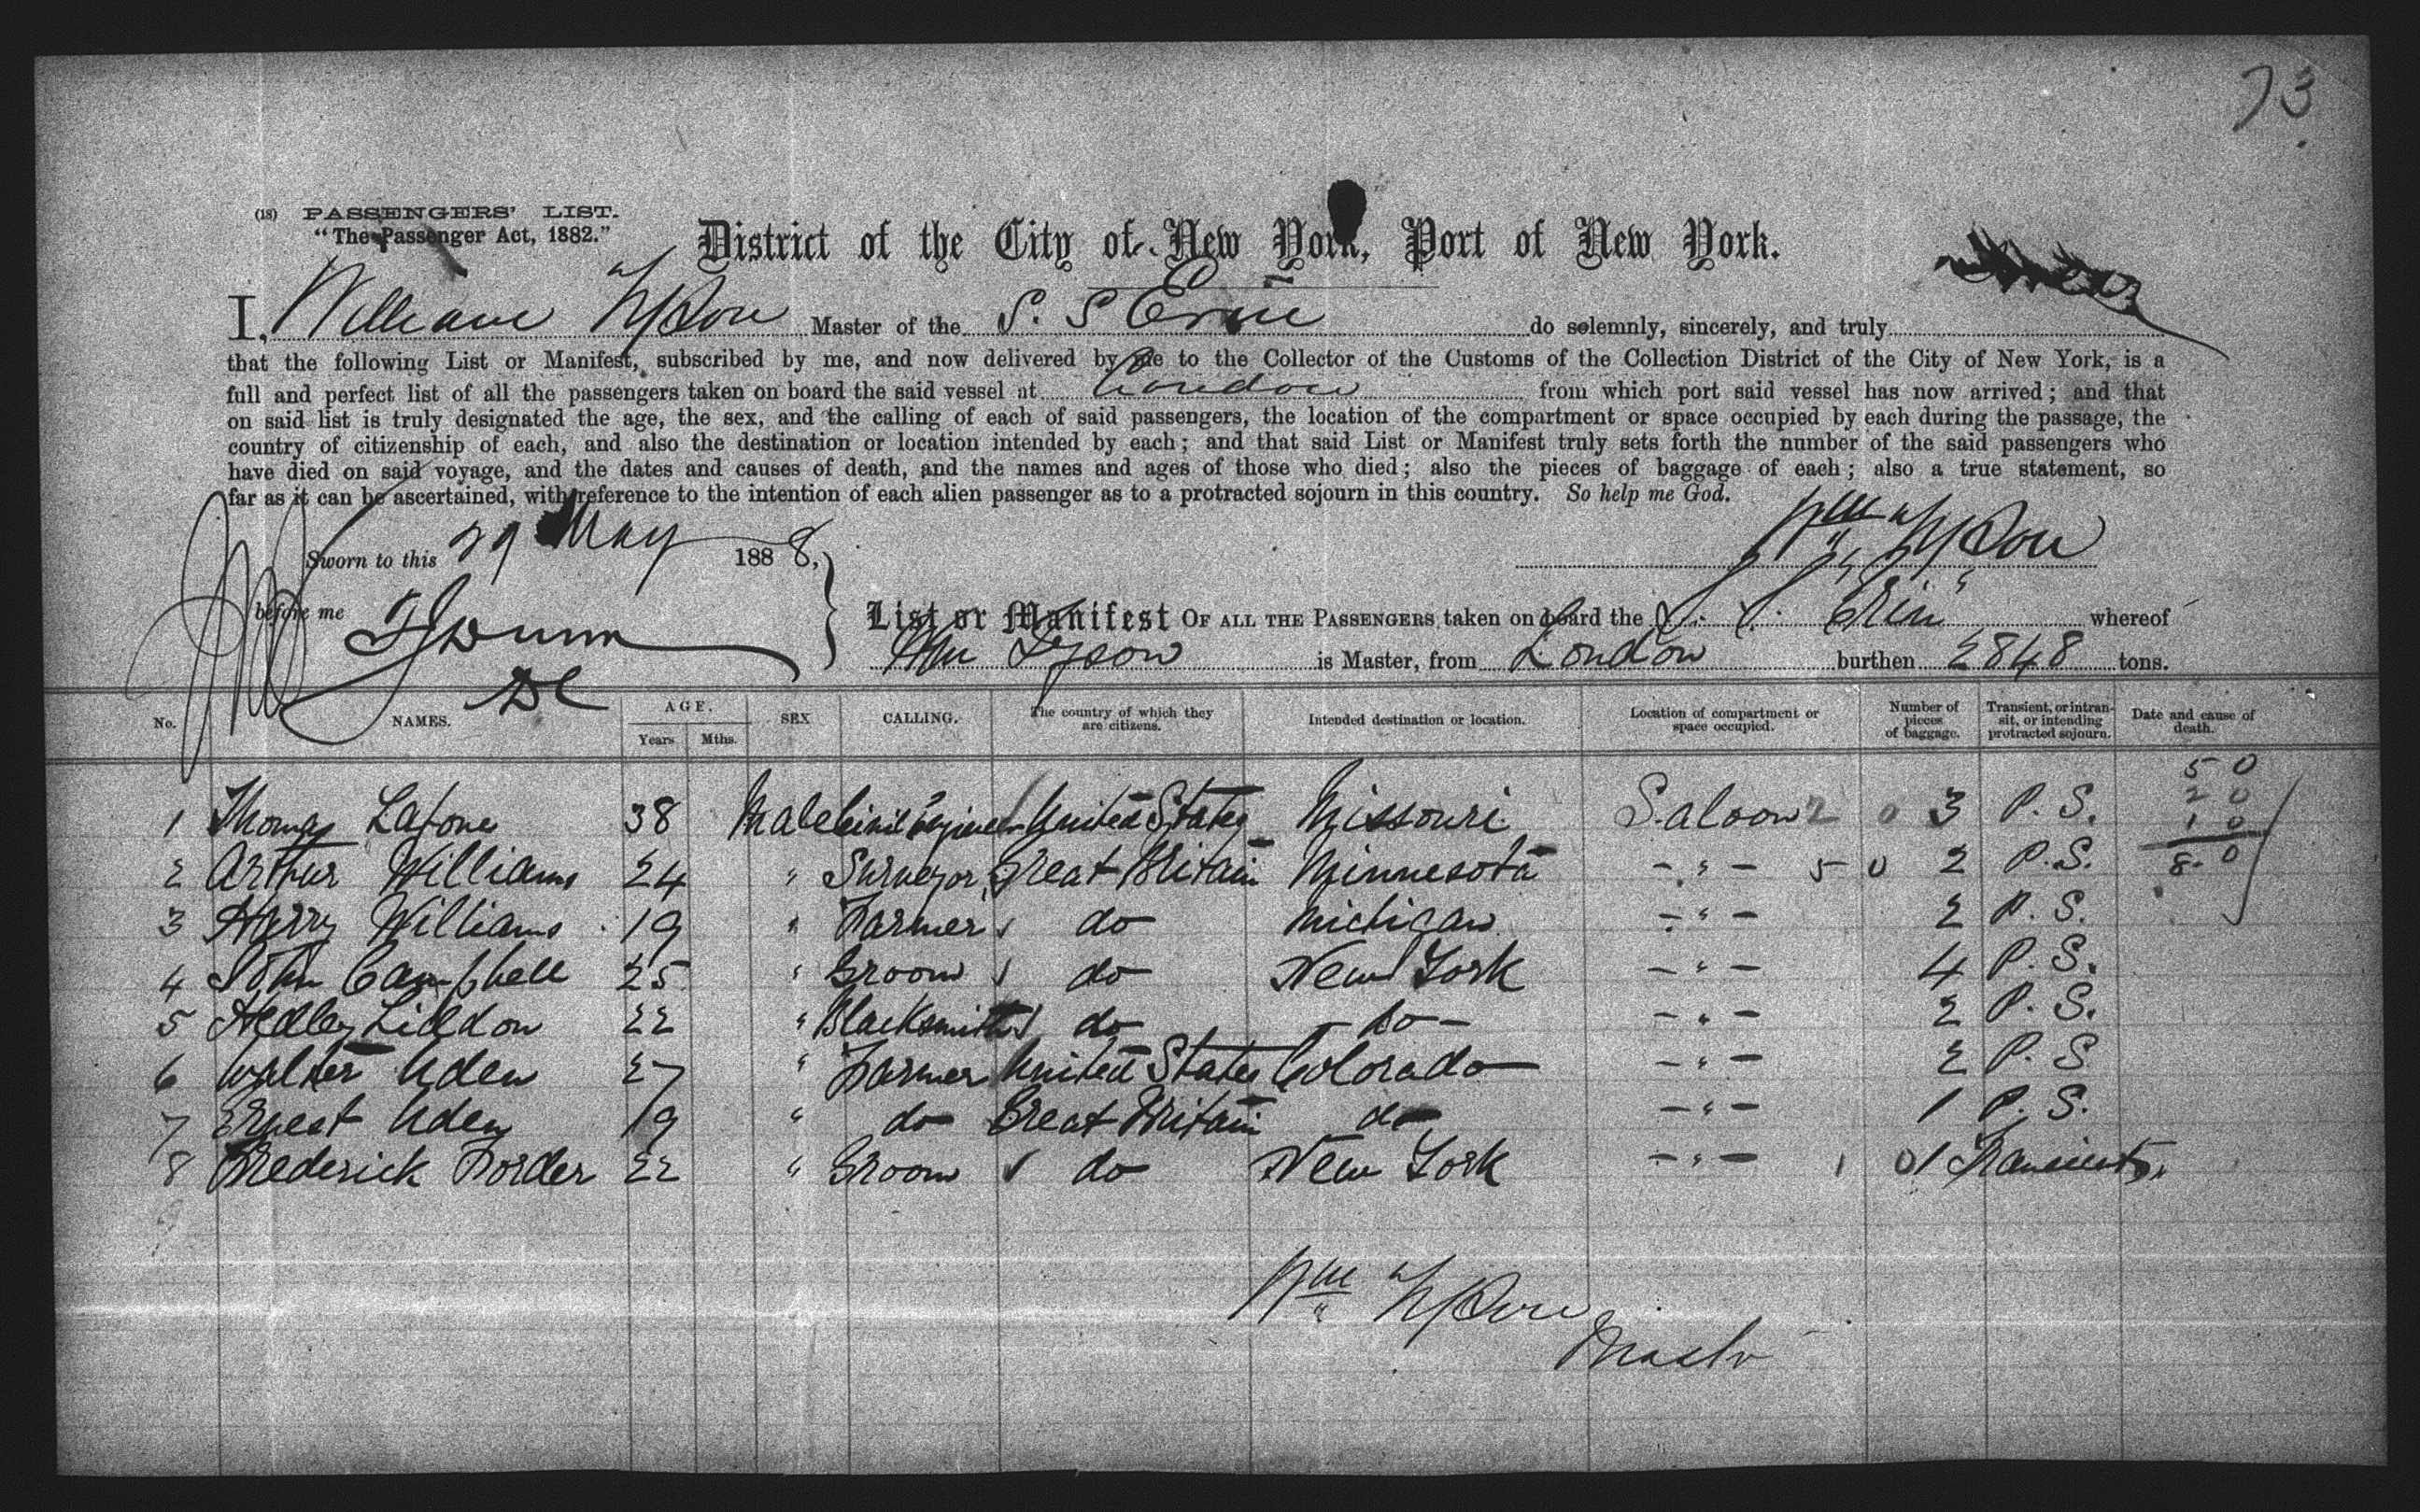 73
(18) PASSENGERS' LIST.
"The Passenger Act, 1882."
District of the City of New York, Port of New York.
I, William Tyson Master of the S. S Erin do solemnly, sincerely, and truly
that the following List or Manifest, subscribed by me, and now delivered by me to the Collector of the Customs of the Collection District of the City of New York, is a
full and perfect list of all the passengers taken on board the said vessel at London from which port said vessel has now arrived; and that
on said list is truly designated the age, the sex, and the calling of each of said passengers, the location of the compartment or space occupied by each during the passage, the
country of citizenship of each, and also the destination or location intended by each; and that said List or Manifest truly sets forth the number of the said passengers who
have died on said voyage, and the dates and causes of death, and the names and ages of those who died; also the pieces of baggage of each; also a true statement, so
far as it can be ascertained, with reference to the intention of each alien passenger as to a protracted sojourn in this country. So help me God.
Wm Tyson
Sworn to this 29 May 1888,
before me
DC
List or Manifest OF ALL THE PASSENGERS taken on board the S. S. "Erin" whereof
Wm Tyson is Master, from London burthen 2848 tons.
No. NAMES. AGE. Years Mths. SEX CALLING. The country of which they are citizens. Intended destination or location. Location of compartment or space occupied. Number of pieces of baggage. Transient, or in transit, or intending protracted sojourn. Date and cause of death.
5 0
2 0
1 0
8 0
1 Thomas Lafone 38 Male Civil Engineer United States Missouri Saloon 2 0 3 P. S.
2 Arthur Williams 24 " Surveyor Great Britain Minnesota - " - 5 0 2 P. S.
3 Harry Williams 19 " Farmer do Michigan - " - 2 P. S.
4 John Campbell 25 " Groom do New York - " - 4 P. S.
5 Hedley Liddon 22 " Blacksmith do - do - - " - 2 P. S.
6 Walter Aden 27 " Farmer United States Colorado - " - 2 P. S.
7 Ernest Aden 19 " do Great Britain do - " - 1 P. S.
8 Frederick Forder 22 " Groom do New York - " - 1 0 1 Transient
Wm Tyson
Master